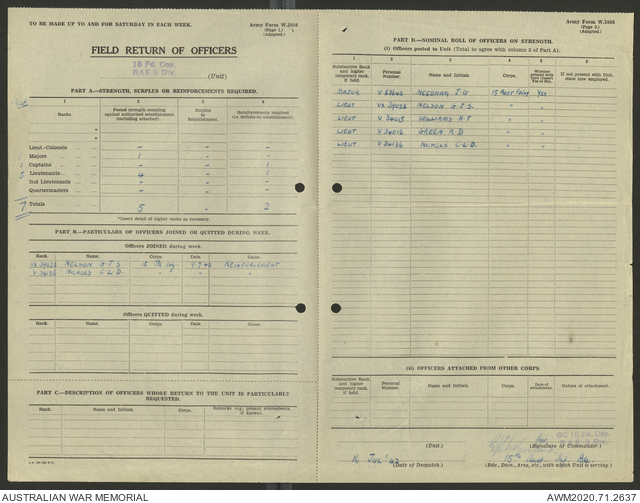 TO BE MADE UP TO AND FOR SATURDAY IN EACH WEEK.
Army Form W.3008
(Page 1.)
(Adapted.)
FIELD RETURN OF OFFICERS
15 Fd. Coy.
RAE 9 Div.
(Unit)
PART A.—STRENGTH, SURPLUS OR REINFORCEMENTS REQUIRED.
1 2 3 4
Ranks. Posted strength counting against authorised establishment (excluding attached) Surplus to Establishment. Reinforcements required (i.e. deficits on establishment).
Lieut.-Colonels – – –
1 Majors 1 – –
1 Captains – – 1
5 Lieutenants 4 – 1
2nd Lieutenants – – –
Quartermasters – – –
7 Totals 5 – 2
*Insert detail of higher ranks as necessary.
PART B.—PARTICULARS OF OFFICERS JOINED OR QUITTED DURING WEEK.
Officers JOINED during week.
Rank. Name. Corps. Date. Remarks.
VX 39028 NELSON G.J.S 15 Fd Coy. 9.7.42 REINFORCEMENT
V 34136 NICHOLS C.L.D. " " "
Officers QUITTED during week.
Rank. Name. Corps. Date. Remarks.
PART C.—DESCRIPTION OF OFFICERS WHOSE RETURN TO THE UNIT IS PARTICULARLY REQUESTED.
Rank. Name and Initials. Corps. Remarks (e.g., present whereabouts, if known).
Army Form W.3008
(Page 2.)
(Adapted.)
PART D.—NOMINAL ROLL OF OFFICERS ON STRENGTH.
(i) Officers posted to Unit (Total to agree with column 2 of Part A).
1 2 3 4 5 6
Substantive Rank and higher temporary rank, if held. Personal Number. Name and Initials. Corps. Whether present with Unit (Insert Yes or No). If not present with Unit, state how employed.
MAJOR V 83642 NEEDHAM J G 15 Aust Fd Coy YES
LIEUT VX 39028 NELSON G.J.S. " "
LIEUT V 34015 WILLIAMS H.T " "
LIEUT V 34016 GREEN R D " "
LIEUT V 34136 NICHOLS C.L.D. " "
(ii) OFFICERS ATTACHED FROM OTHER CORPS.
Substantive Rank and higher temporary rank, if held. Personal Number. Name and Initials. Corps. Date of attachment. Nature of attachment.
OC 15 Fd. Coy.
(Unit.) (Signature of Commander.)
16 JUL '42
(Date of Despatch.) (Bde., Divn., Area, etc., with which Unit is serving.)
AUSTRALIAN WAR MEMORIAL
AWM2020.71.2637